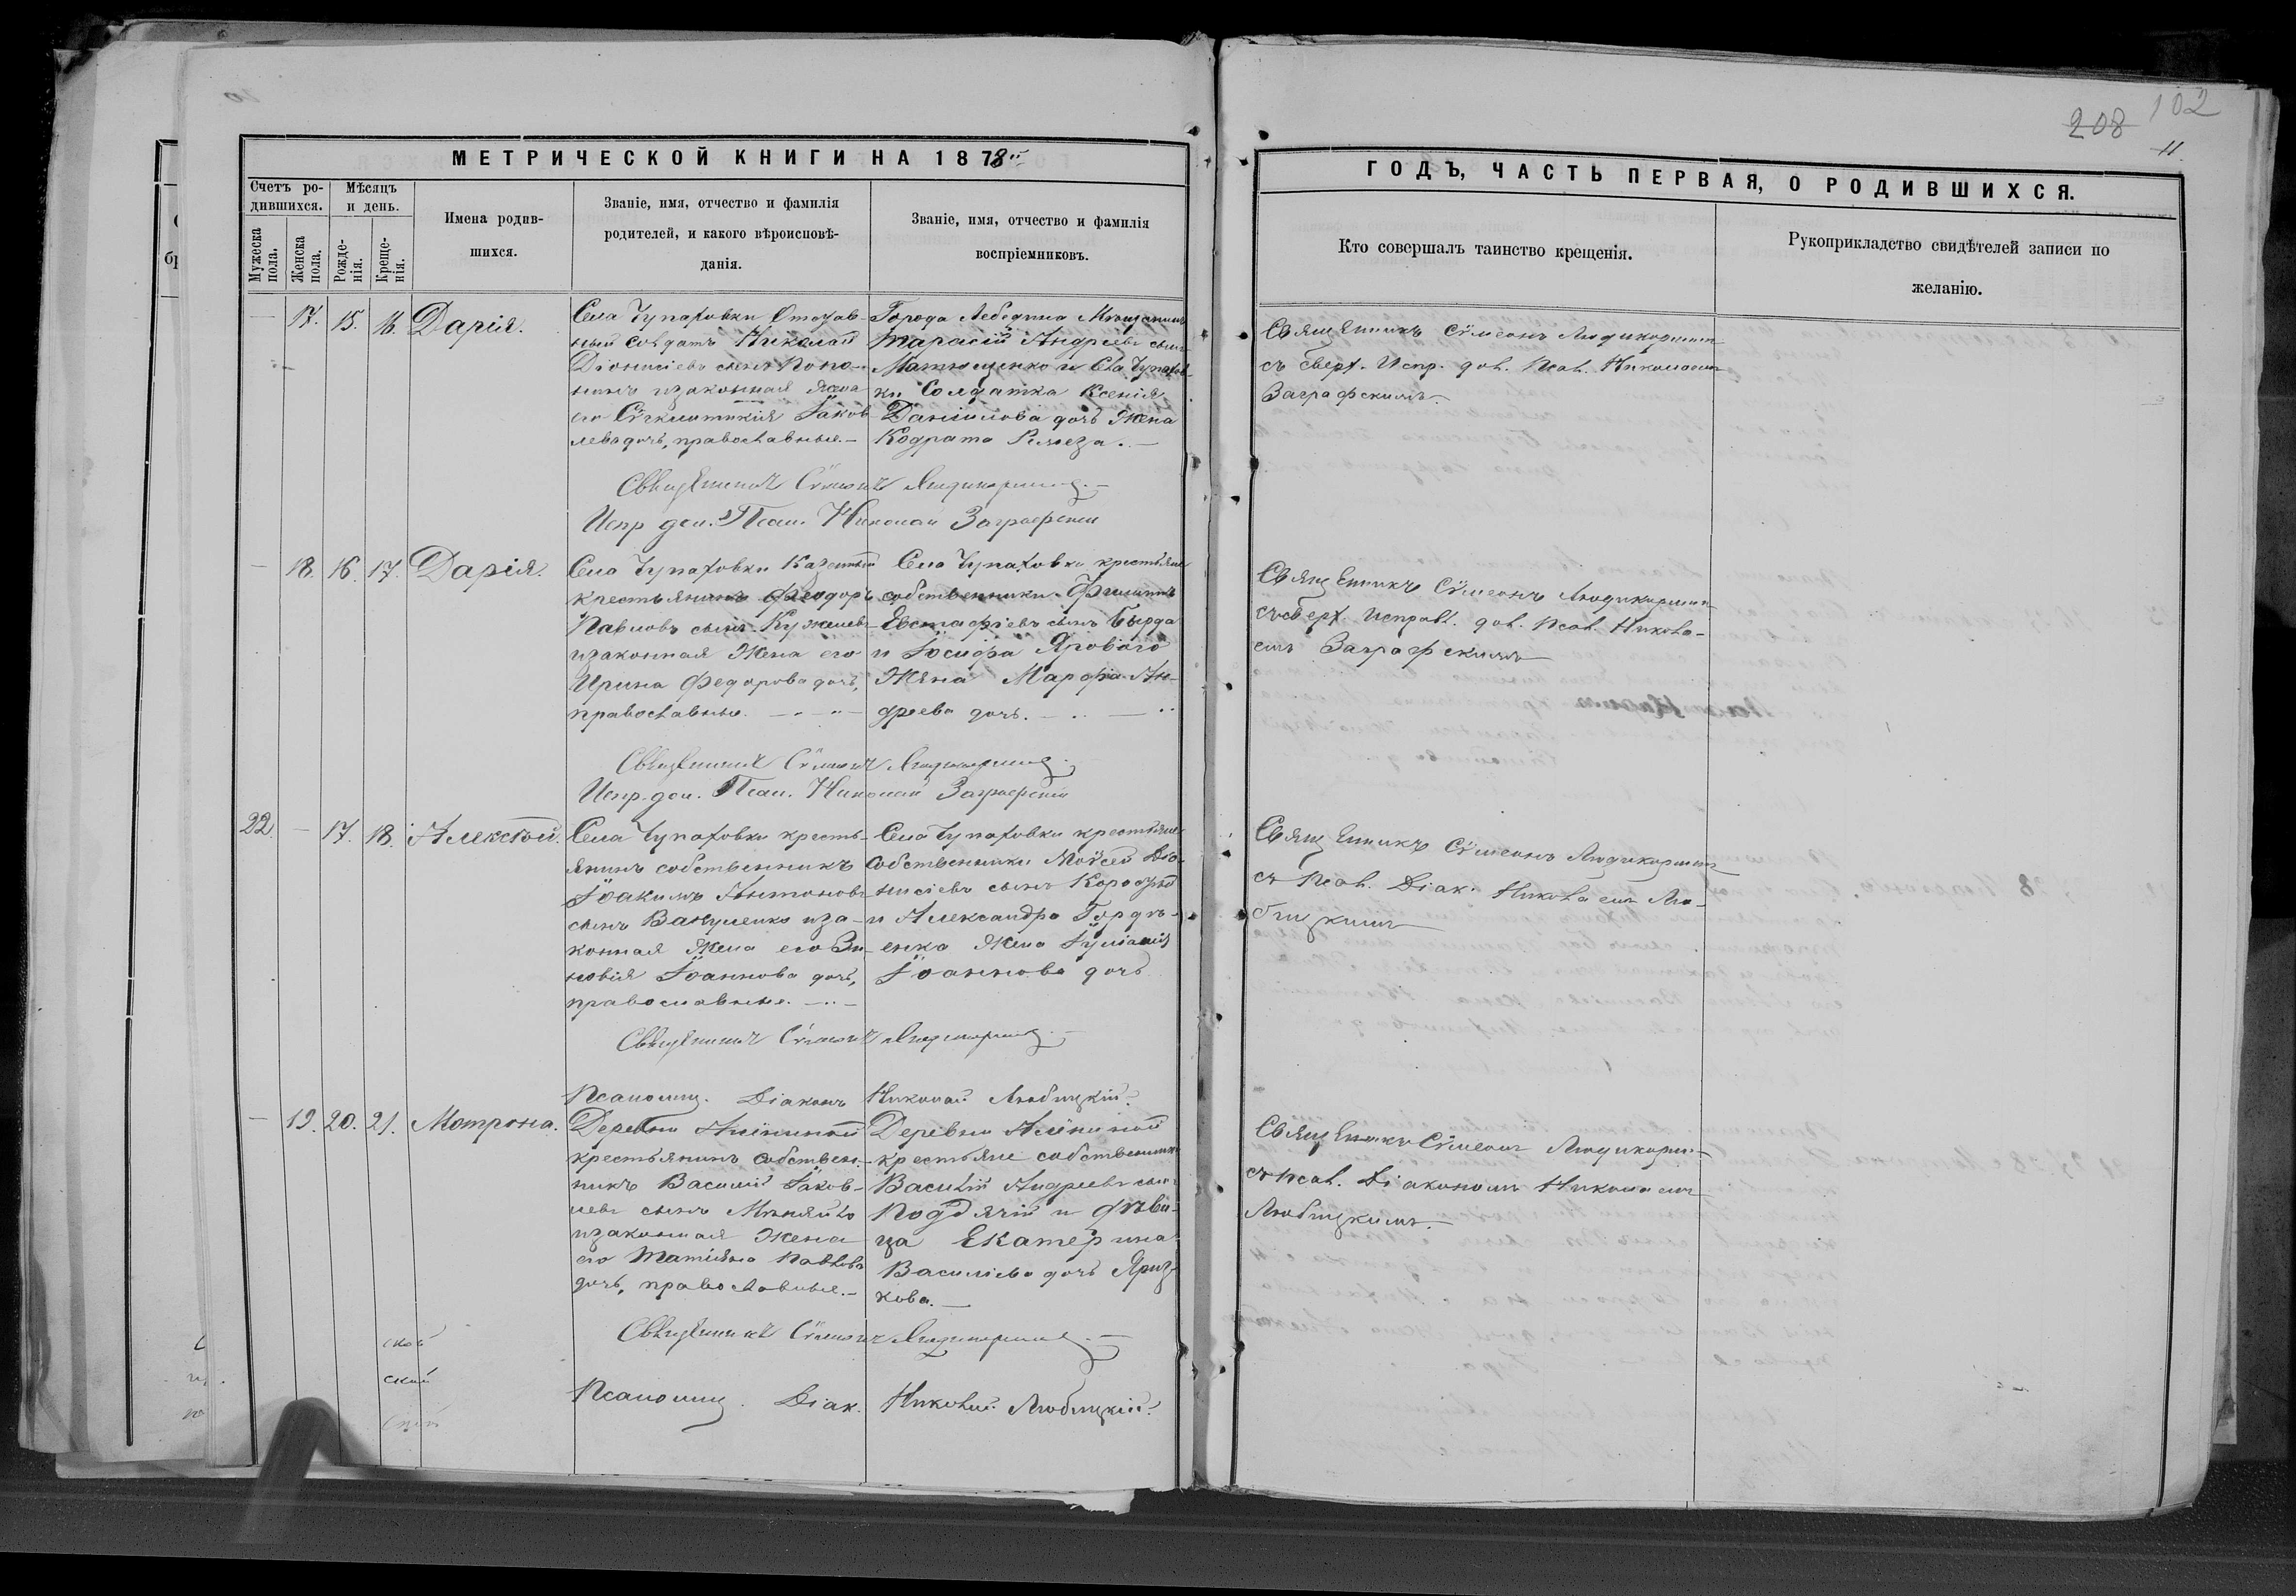 102
208
11.
МЕТРИЧЕСКОЙ КНИГИ НА 1878й
Счетъ ро-
дившихся.
Мужеска пола.
Женска пола.
Мѣсяцъ
и день.
Рожде-
нія.
Креще-
нія.
Имена родив-
шихся.
Званіе, имя, отчество и фамилія
родителей, и какого вѣроисповѣ-
данія.
Званіе, имя, отчество и фамилія
воспріемниковъ.
ГОДЪ, ЧАСТЬ ПЕРВАЯ, О РОДИВШИХСЯ.
Кто совершалъ таинство крещенія.
Рукоприкладство свидѣтелей записи по
желанію.
— 17. 15. 16. Дарія.
Села Чупаховки Отстав-
ный Солдатъ Николай
Діонисіевъ сынъ Поно-
и законная жена
его Сѵнклитикія Іаков-
лева дочь, православные.—
Города Лебедина Мѣщанинъ
Тарасій Андріевъ сынъ
Матющенко и Села Чупахов-
ки Солдатка Ксенія
Даніилова дочь Жена
Кодрата
Священникъ Сѵмеонъ
съ сверх. Испр. дол. Псал. Николаемъ
Заграфскимъ.—
Священникъ Сѵмеонъ
Испр. дол. Псал. Николай Заграфскій
— 18. 16. 17. Дарія.
Села Чупаховки Казенный
крестьянинъ Феодоръ
Павловъ сынъ
и законная Жена его
Ирина Федорова дочь,
православные.
Села Чупаховки крестьяне
собственники Филиппъ
Евстафіевъ сынъ Бырда
и Іосифа Яроваго
Жена Марфа Ан-
дреева дочь.
Священникъ Сѵмеонъ
съ сверх. Исправ. дол. Псал. Никола-
емъ Заграфскимъ
Священникъ Сѵмеонъ
Испр. дол. Псал. Николай Заграфскій
22. — 17. 18. Алексѣй.
Села Чупаховки кресть-
янинъ собственникъ
Іоакимъ Антоновъ
сынъ Вакуленко и за-
конная Жена его Зи-
новія Іоаннова дочь,
православные.
Села Чупаховки крестьяне
собственники Моѵсей Діо-
нисіевъ сынъ
и Александра Гордѣ-
енка Жена Іуліанія
Іоаннова дочь
Священникъ Сѵмеонъ
съ Псал. Діак. Николаемъ Лю-
бицкимъ
Священникъ Сѵмеонъ
Псаломщ. Діаконъ Николай Любицкій.
— 19. 20. 21. Матрона.
Деревни
крестьянинъ собствен-
никъ Василій Іаков-
левъ сынъ Миняйло
и законная Жена
его Татіяна Павлова
дочь, православные.—
Деревни
крестьяне собственники
Василій Андреевъ сынъ
Поддячій и дѣви-
ца Екатерина
Василіева дочь
кова.—
Священникъ Сѵмеонъ
съ Псал. Діакономъ Николаемъ
Любицкимъ.—
Священникъ Сѵмеонъ
Псаломщ. Діак. Николай Любицкій.